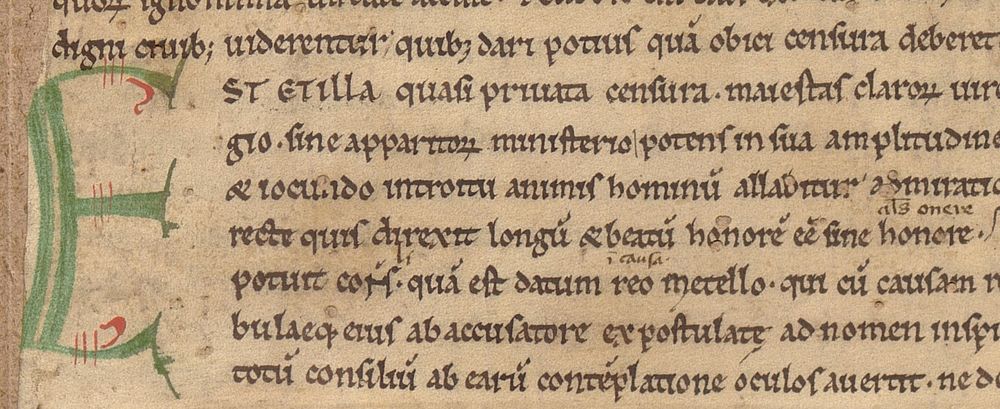 digni ciuib; uiderentur quib; dari potius quā obici censura deberet
EST ET ILLA quasi priuata censura · maiestas claroꝝ uiro
gio · sine apparitoꝝ ministerio potens in sua amplitudine
& iocundo introitu animis hominū allabitur admiratio
als onere
recte quis direxit longū & beatū honorē eē sine honore ·
i causa
potuit · quā est datum reo metello · qui cū causam
bulaeq; eius ab accusatore expostulatę ad nomen inspi
totū consiliū ab earū contēplatione oculos auertit · ne de